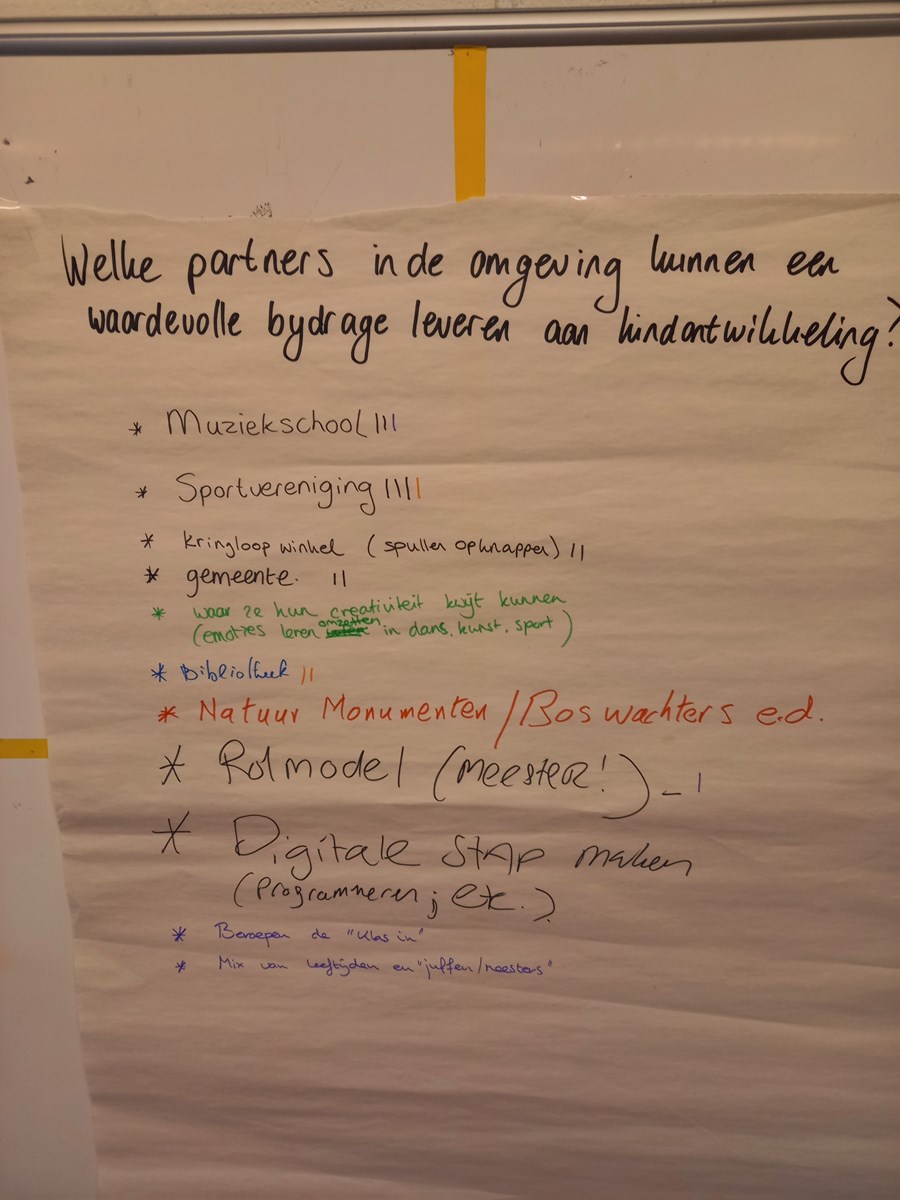 Welke partners in de omgeving kunnen een
waardevolle bydrage leveren aan kindontwikkeling?
* Muziekschool |||
* Sportvereniging |||||
* kringloop winkel (spullen opknappen) ||
* gemeente. ||
* waar ze hun creativiteit kwijt kunnen
(emoties leren omzetten in dans, kunst, sport)
* Bibliotheek ||
* Natuur Monumenten / Boswachters e.d.
* Rolmodel (meester!) - |
* Digitale stap maken
(programmeren; etc.)
* Beroepen de "klas in"
* Mix van leeftijden en "juffen/meesters"